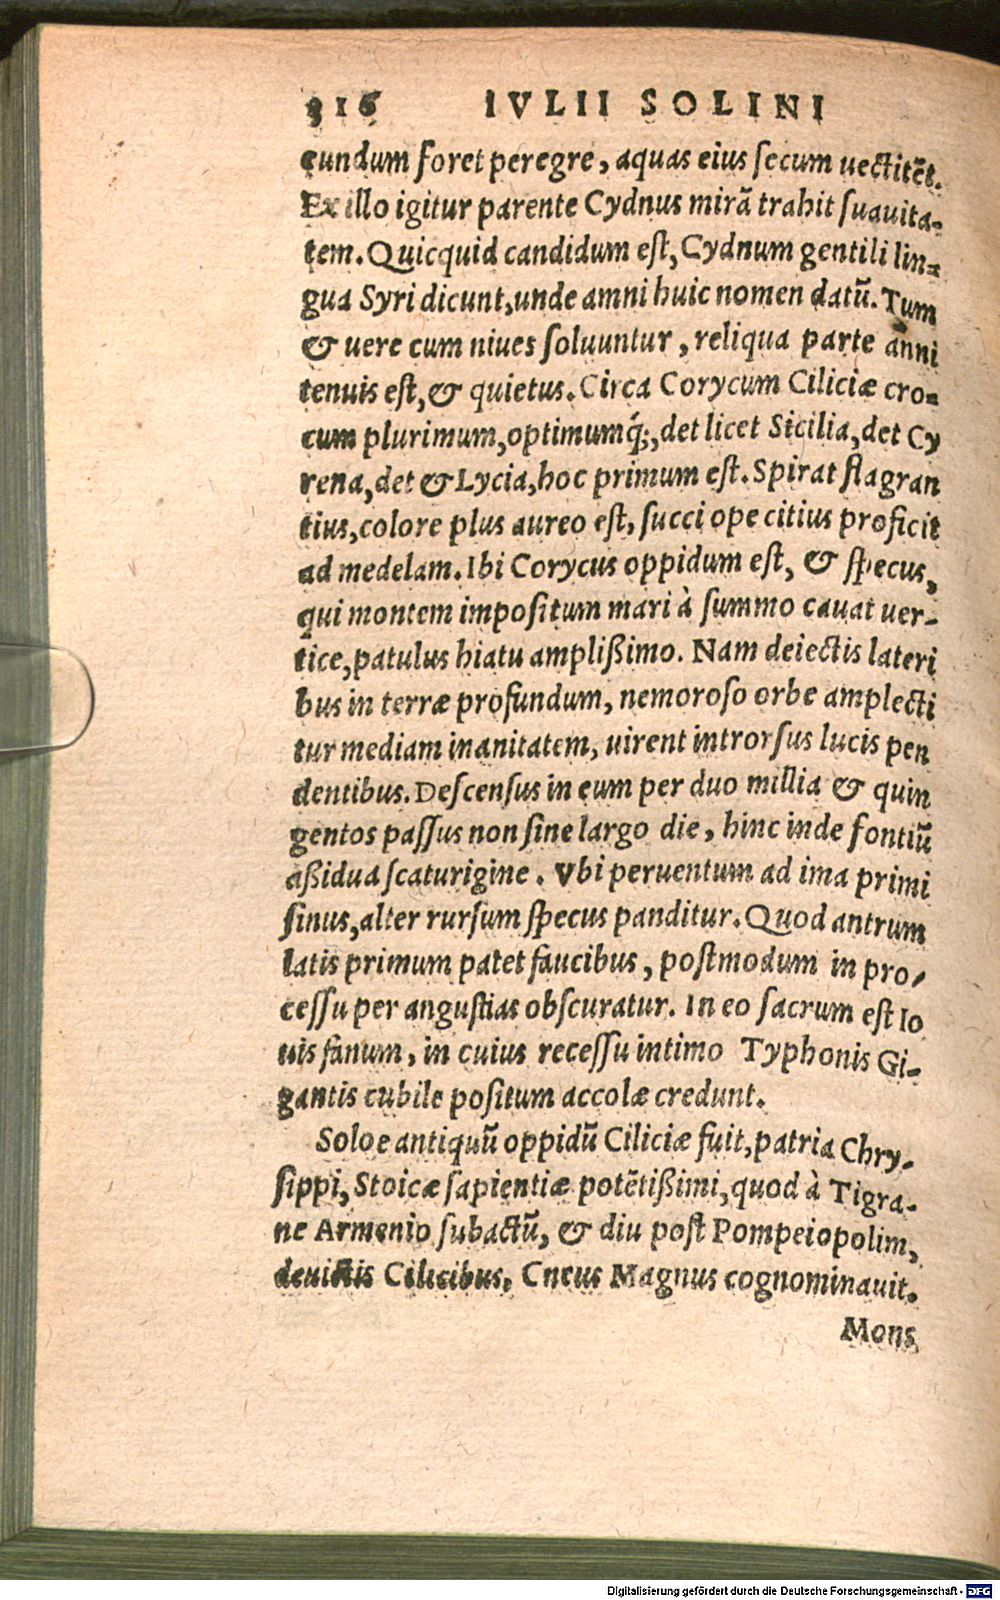 316 IVLII SOLINI
cundum foret peregre, aquas eius secum uectitēt.
Ex illo igitur parente Cydnus mirā trahit suauita-
tem. Quicquid candidum est, Cydnum gentili lin-
gua Syri dicunt, unde amni huic nomen datū. Tum
& uere cum niues soluuntur, reliqua parte anni
tenuis est, & quietus. Circa Corycum Ciliciæ cro-
cum plurimum, optimumq́;, det licet Sicilia, det Cy
rena, det & Lycia, hoc primum est. Spirat flagran
tius, colore plus aureo est, succi ope citius proficit
ad medelam. Ibi Corycus oppidum est, & specus,
qui montem impositum mari à summo cauat uer-
tice, patulus hiatu amplißimo. Nam deiectis lateri
bus in terræ profundum, nemoroso orbe amplecti
tur mediam inanitatem, uirent introrsus lucis pen
dentibus. Descensus in eum per duo millia & quin
gentos passus non sine largo die, hinc inde fontiū
aßidua scaturigine. Vbi peruentum ad ima primi
sinus, alter rursum specus panditur. Quod antrum
latis primum patet faucibus, postmodum in pro-
cessu per angustias obscuratur. In eo sacrum est Io
uis fanum, in cuius recessu intimo Typhonis Gi-
gantis cubile positum accolæ credunt.
Soloe antiquū oppidū Ciliciæ fuit, patria Chry-
sippi, Stoicæ sapientiæ potētißimi, quod à Tigra-
ne Armenio subactū, & diu post Pompeiopolim,
deuictis Cilicibus, Cneus Magnus cognominauit.
Mons
Digitalisierung gefördert durch die Deutsche Forschungsgemeinschaft - DFG